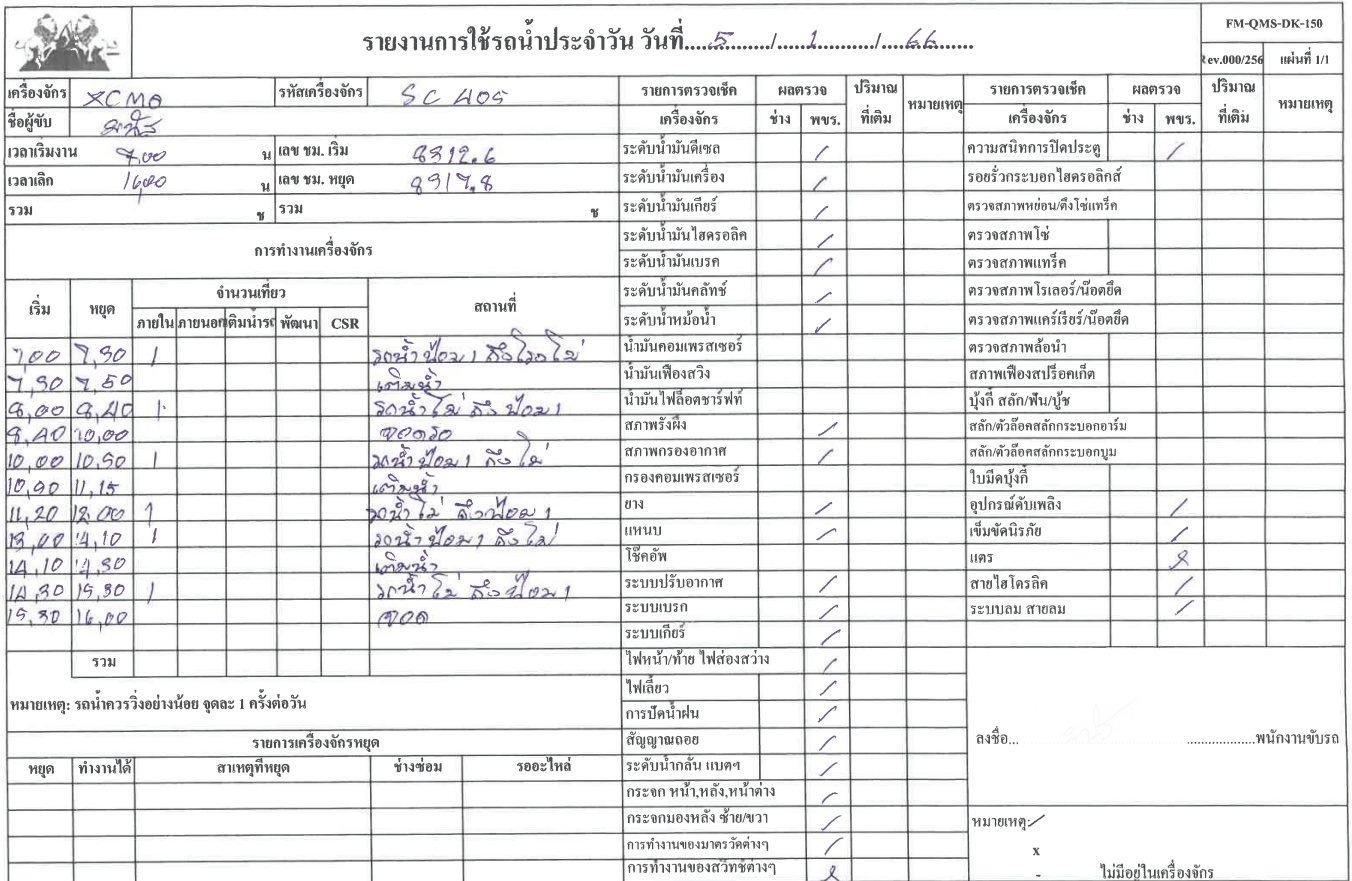 รายงานการใช้รถน้ำประจำวัน วันที่....5........./.....1.........../....66.......
FM-QMS-DK-150
Rev.000/256 แผ่นที่ 1/1
เครื่องจักร XCMG รหัสเครื่องจักร SC 405
ชื่อผู้ขับ
เวลาเริ่มงาน 7,00 น เลข ชม. เริ่ม 8312.6
เวลาเลิก 16,00 น เลข ชม. หยุด 8317.8
รวม ช รวม ช
การทำงานเครื่องจักร
เริ่ม หยุด จำนวนเที่ยว สถานที่
ภายใน ภายนอก เติมน้ำรถ พัฒนา CSR
7,00 7,30 / รถน้ำป้อม 1 ถึงโรงโม่
7,30 7,50 เติมน้ำ
8,00 8,40 / รถน้ำโม่ ถึง ป้อม 1
8,40 10,00 จอดรอ
10,00 10,50 / รถน้ำป้อม 1 ถึง โม่
10,50 11,15 เติมน้ำ
11,20 12,00 / รถน้ำโม่ ถึงป้อม 1
13,00 14,10 / รถน้ำป้อม 1 ถึงโม่
14,10 14,30 เติมน้ำ
14,30 15,30 / รถน้ำโม่ ถึงป้อม 1
15,30 16,00 จอด
รวม
หมายเหตุ: รถน้ำควรวิ่งอย่างน้อย จุดละ 1 ครั้งต่อวัน
รายการเครื่องจักรหยุด
หยุด ทำงานได้ สาเหตุที่หยุด ช่างซ่อม รออะไหล่
รายการตรวจเช็ค ผลตรวจ ปริมาณ หมายเหตุ
เครื่องจักร ช่าง พขร. ที่เติม
ระดับน้ำมันดีเซล /
ระดับน้ำมันเครื่อง /
ระดับน้ำมันเกียร์ /
ระดับน้ำมันไฮดรอลิค /
ระดับน้ำมันเบรค /
ระดับน้ำมันคลัทช์ /
ระดับน้ำหม้อน้ำ /
น้ำมันคอมเพรสเซอร์
น้ำมันเฟืองสวิง
น้ำมันไฟล็อตชาร์ฟท์
สภาพรังผึ้ง /
สภาพกรองอากาศ /
กรองคอมเพรสเซอร์
ยาง /
แหนบ /
โช๊คอัพ
ระบบปรับอากาศ /
ระบบเบรก /
ระบบเกียร์ /
ไฟหน้า/ท้าย ไฟส่องสว่าง /
ไฟเลี้ยว /
การปัดน้ำฝน /
สัญญาณถอย /
ระดับน้ำกลั่น แบตฯ /
กระจก หน้า,หลัง,หน้าต่าง /
กระจกมองหลัง ซ้าย/ขวา /
การทำงานของมาตรวัดต่างๆ /
การทำงานของสวิทช์ต่างๆ
รายการตรวจเช็ค ผลตรวจ ปริมาณ หมายเหตุ
เครื่องจักร ช่าง พขร. ที่เติม
ความสนิทการปิดประตู /
รอยรั่วกระบอกไฮดรอลิกส์
ตรวจสภาพหย่อน/ตึงโซ่แทร็ค
ตรวจสภาพโซ่
ตรวจสภาพแทร็ค
ตรวจสภาพโรเลอร์/น๊อตยึด
ตรวจสภาพแคร์เรียร์/น๊อตยึด
ตรวจสภาพล้อนำ
สภาพเฟืองสปร็อคเก็ต
บุ้งกี๋ สลัก/ฟัน/บู้ช
สลัก/ตัวล๊อคสลักกระบอกอาร์ม
สลัก/ตัวล๊อคสลักกระบอกบูม
ใบมีดบุ้งกี๋
อุปกรณ์ดับเพลิง /
เข็มขัดนิรภัย /
แตร
สายไฮโดรลิค /
ระบบลม สายลม /
ลงชื่อ... ...................พนักงานขับรถ
หมายเหตุ: /
x
- ไม่มีอยู่ในเครื่องจักร